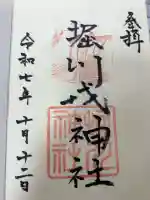 拝
堀川戎神社
令和七年十月十二日